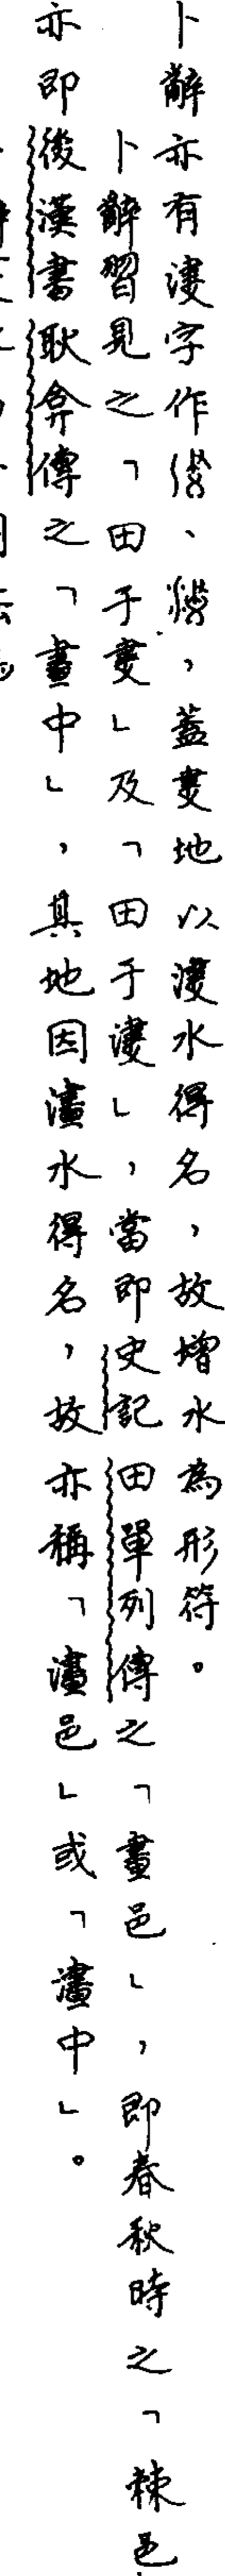 卜辭亦有漊字作、，蓋婁地以漊水得名，故增水為形符。
卜辭習見之「田于婁」及「田于漊」，當即史記田單列傳之「畫邑」，即春秋時之「棘邑
亦即後漢書耿弇傳之「畫中」，其地因澅水得名，故亦稱「澅邑」或「澅中」。